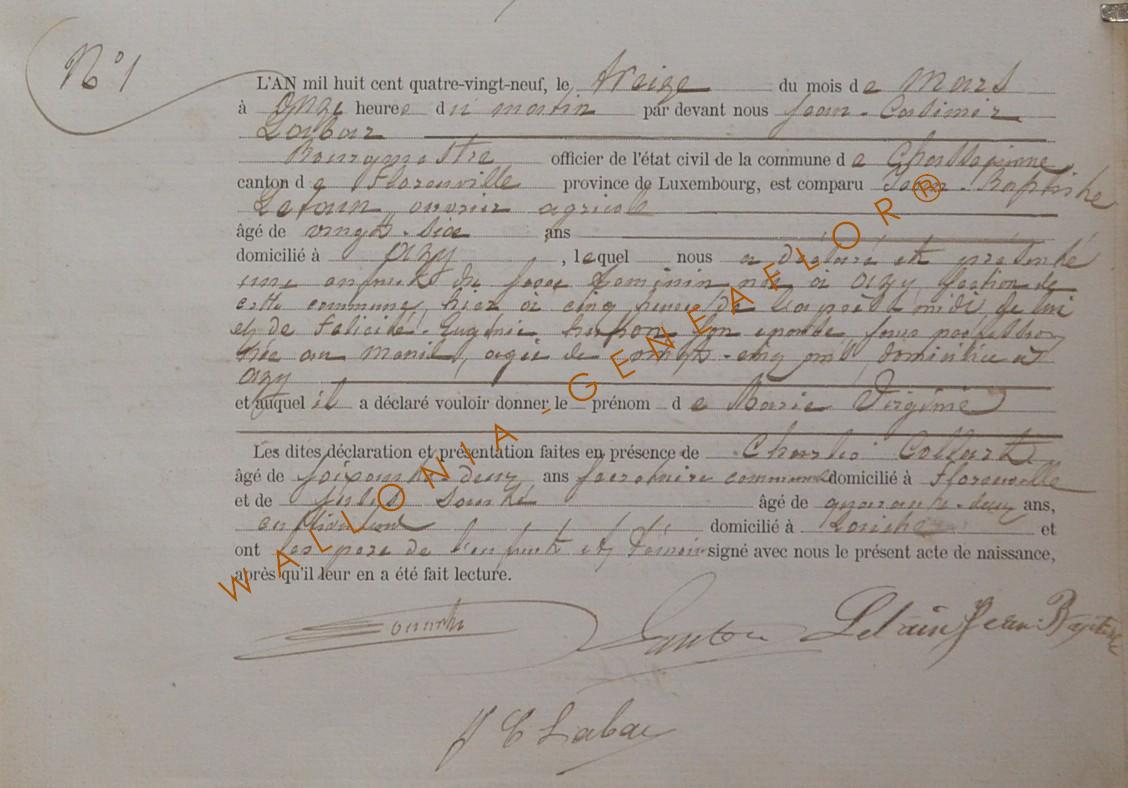 N° 1
L'AN mil huit cent quatre-vingt-neuf, le treize du mois de Mars
à onze heures du matin par devant nous Jean-Casimir
Labar
Bourgmestre officier de l'état civil de la commune de Chassepierre
canton de Florenville province de Luxembourg, est comparu Jean-Baptiste
Lefain, ouvrier agricole
âgé de vingt-six ans
domicilié à Azy, lequel nous a déclaré et présenté
une enfant du sexe féminin née à Azy section de
cette commune, hier à cinq heures de l'après midi, de lui
et de Félicité Eugénie son épouse, sans profession
née au Ménil, âgée de vingt-cinq ans, domiciliée à
Azy
et auquel il a déclaré vouloir donner le prénom de Marie Virginie
Les dites déclaration et présentation faites en présence de Charles Collart
âgé de soixante deux ans secrétaire communal domicilié à Florenville
et de Jules âgé de quarante-deux ans,
cultivateur domicilié à et
ont les père de l'enfant et témoins signé avec nous le présent acte de naissance,
après qu'il leur en a été fait lecture.
Jean Baptiste
J C Labar
WALLONIA-GENEAFLOR®